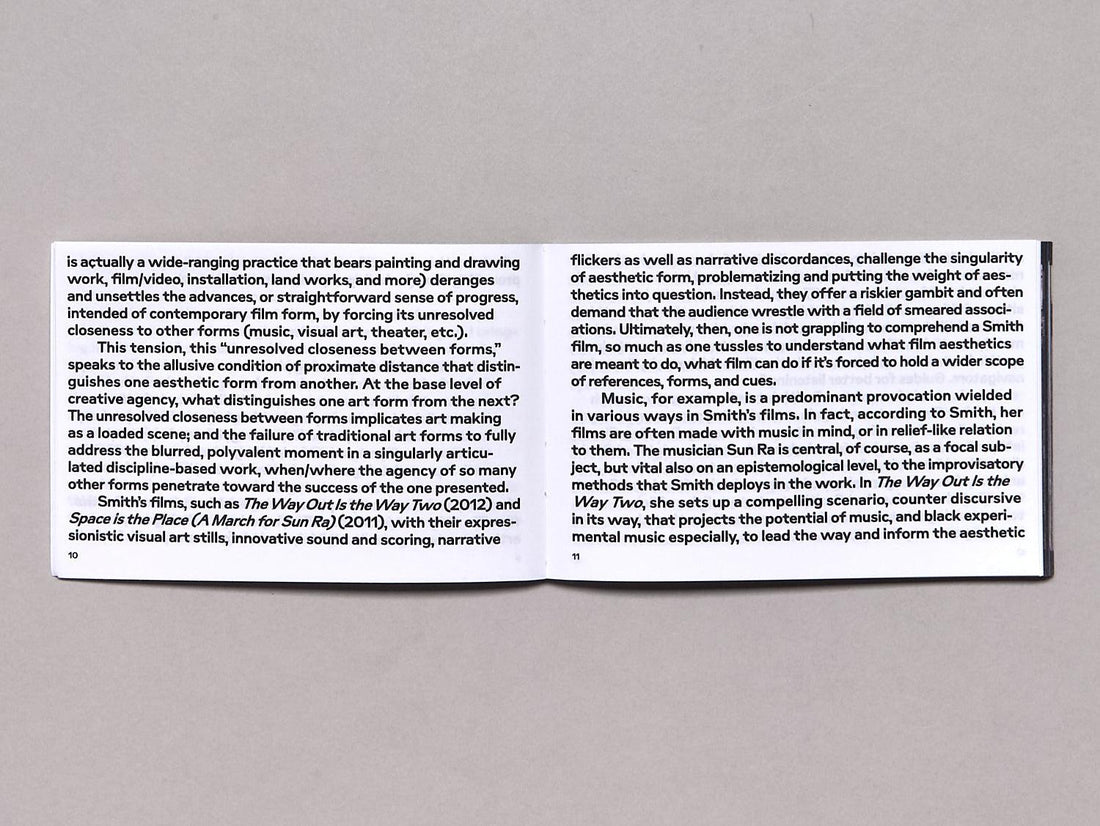 is actually a wide-ranging practice that bears painting and drawing
work, film/video, installation, land works, and more) deranges
and unsettles the advances, or straightforward sense of progress,
intended of contemporary film form, by forcing its unresolved
closeness to other forms (music, visual art, theater, etc.).
This tension, this “unresolved closeness between forms,”
speaks to the allusive condition of proximate distance that distin-
guishes one aesthetic form from another. At the base level of
creative agency, what distinguishes one art form from the next?
The unresolved closeness between forms implicates art making
as a loaded scene; and the failure of traditional art forms to fully
address the blurred, polyvalent moment in a singularly articu-
lated discipline-based work, when/where the agency of so many
other forms penetrate toward the success of the one presented.
Smith’s films, such as The Way Out Is the Way Two (2012) and
Space is the Place (A March for Sun Ra) (2011), with their expres-
sionistic visual art stills, innovative sound and scoring, narrative
10
flickers as well as narrative discordances, challenge the singularity
of aesthetic form, problematizing and putting the weight of aes-
thetics into question. Instead, they offer a riskier gambit and often
demand that the audience wrestle with a field of smeared associ-
ations. Ultimately, then, one is not grappling to comprehend a Smith
film, so much as one tussles to understand what film aesthetics
are meant to do, what film can do if it’s forced to hold a wider scope
of references, forms, and cues.
Music, for example, is a predominant provocation wielded
in various ways in Smith’s films. In fact, according to Smith, her
films are often made with music in mind, or in relief-like relation
to them. The musician Sun Ra is central, of course, as a focal sub-
ject, but vital also on an epistemological level, to the improvisatory
methods that Smith deploys in the work. In The Way Out Is the
Way Two, she sets up a compelling scenario, counter discursive
in its way, that projects the potential of music, and black experi-
mental music especially, to lead the way and inform the aesthetic
11